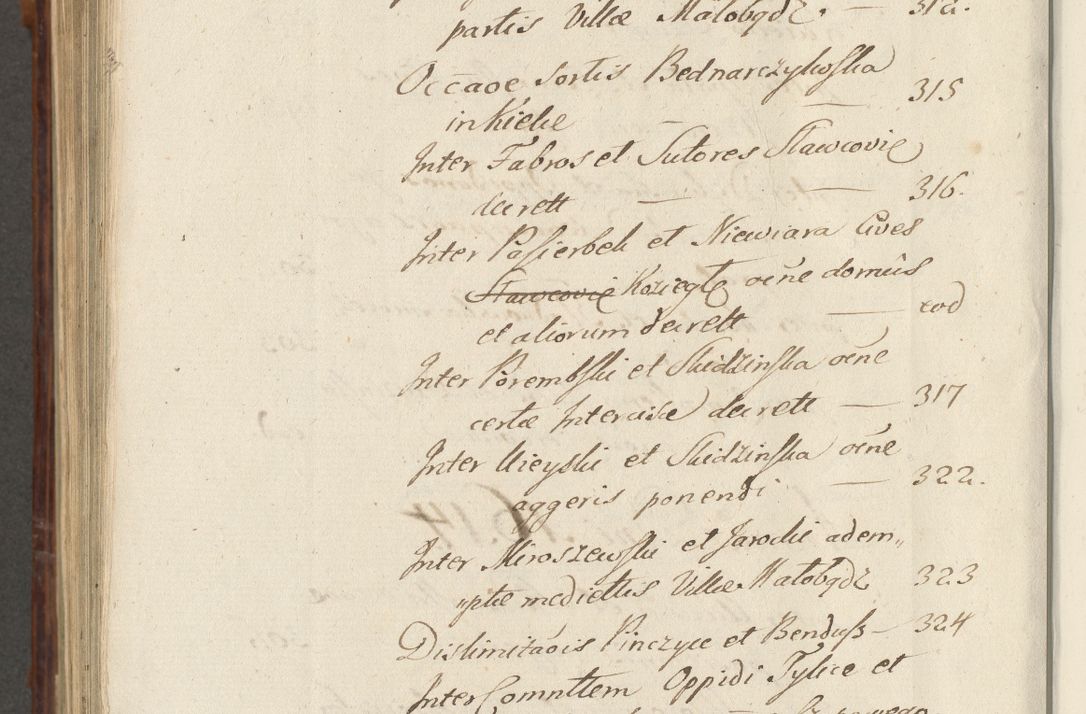 partis Villæ Małobądz. — 312.
Occãoe Sortis Bednarczykowska
in Kielce — — 315
Inter Fabros et Sutores Sławcovie
decrett — — 316.
Inter Pasierbek et Niewiara Cives
Sławcovie Koziegł oẽne domûs
et aliorum decrett — eod
Inter Porembski et Skidzinska oẽne
certæ Intercisæ decrett — 317
Inter Kieyski et Skidzinska oẽne
aggeris ponendi — 322.
Inter Miroszewski et Jarocki adem„
„ptæ mediettis Villæ Małobądz 323
Dislimitãois Pinczyce et Bendusz — 324
Inter Comnttem Oppidi Tylice et